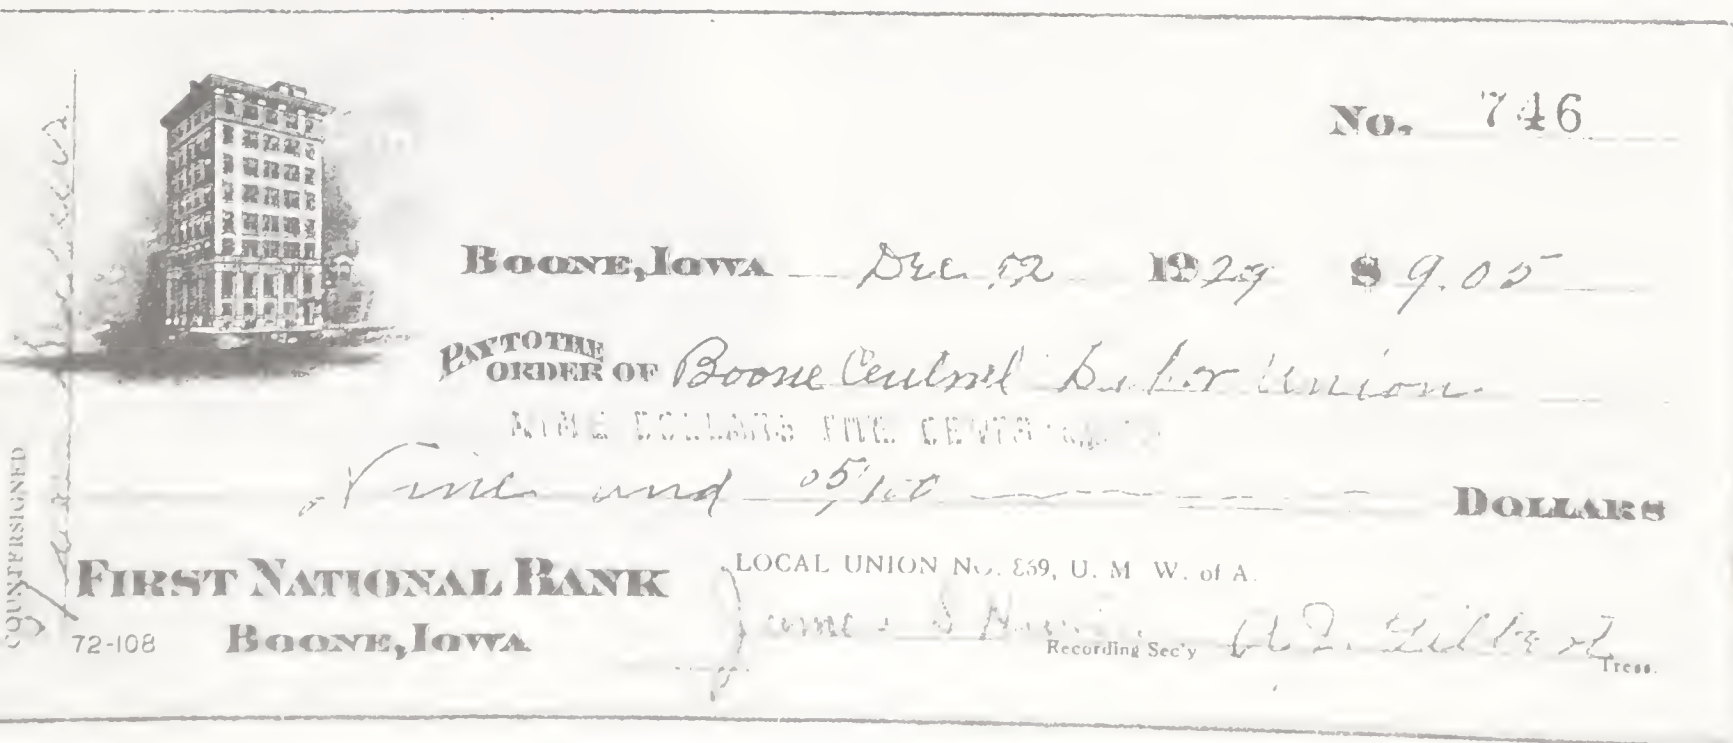 No. 746
BOONE, IOWA Dec 12 1929 $ 9.05
PAY TO THE ORDER OF Boone Central Labor Union
NINE DOLLARS FIVE CENTS
Nine and 05/100
DOLLARS
COUNTERSIGNED
FIRST NATIONAL BANK
LOCAL UNION No. 869, U. M. W. of A.
72-108 BOONE, IOWA
Recording Sec'y
Gilbert
Treas.